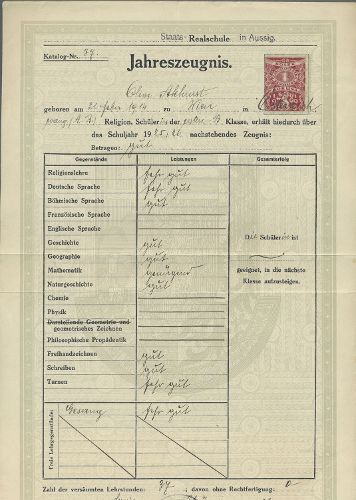 Staats- Realschule in Aussig.
Katalog-Nr. 77.
Jahreszeugnis.
geboren am 21. 1914 zu Wien in
evang. (A. B.) Religion, Schülerin der ersten B Klasse, erhält hiedurch über
das Schuljahr 1925/26 nachstehendes Zeugnis:
Betragen: gut
Gegenstände Leistungen Gesamterfolg
Religionslehre sehr gut
Deutsche Sprache sehr gut
Böhmische Sprache gut
Französische Sprache
Englische Sprache
Geschichte gut
Geographie gut
Mathematik genügend
Naturgeschichte gut
Chemie
Physik
Darstellende Geometrie und
geometrisches Zeichnen
Philosophische Propädeutik
Freihandzeichnen gut
Schreiben gut
Turnen sehr gut
Die Schülerin ist
geeignet, in die nächste
Klasse aufzusteigen.
Freie Lehrgegenstände:
Gesang sehr gut
Zahl der versäumten Lehrstunden: 37 ; davon ohne Rechtfertigung: 0